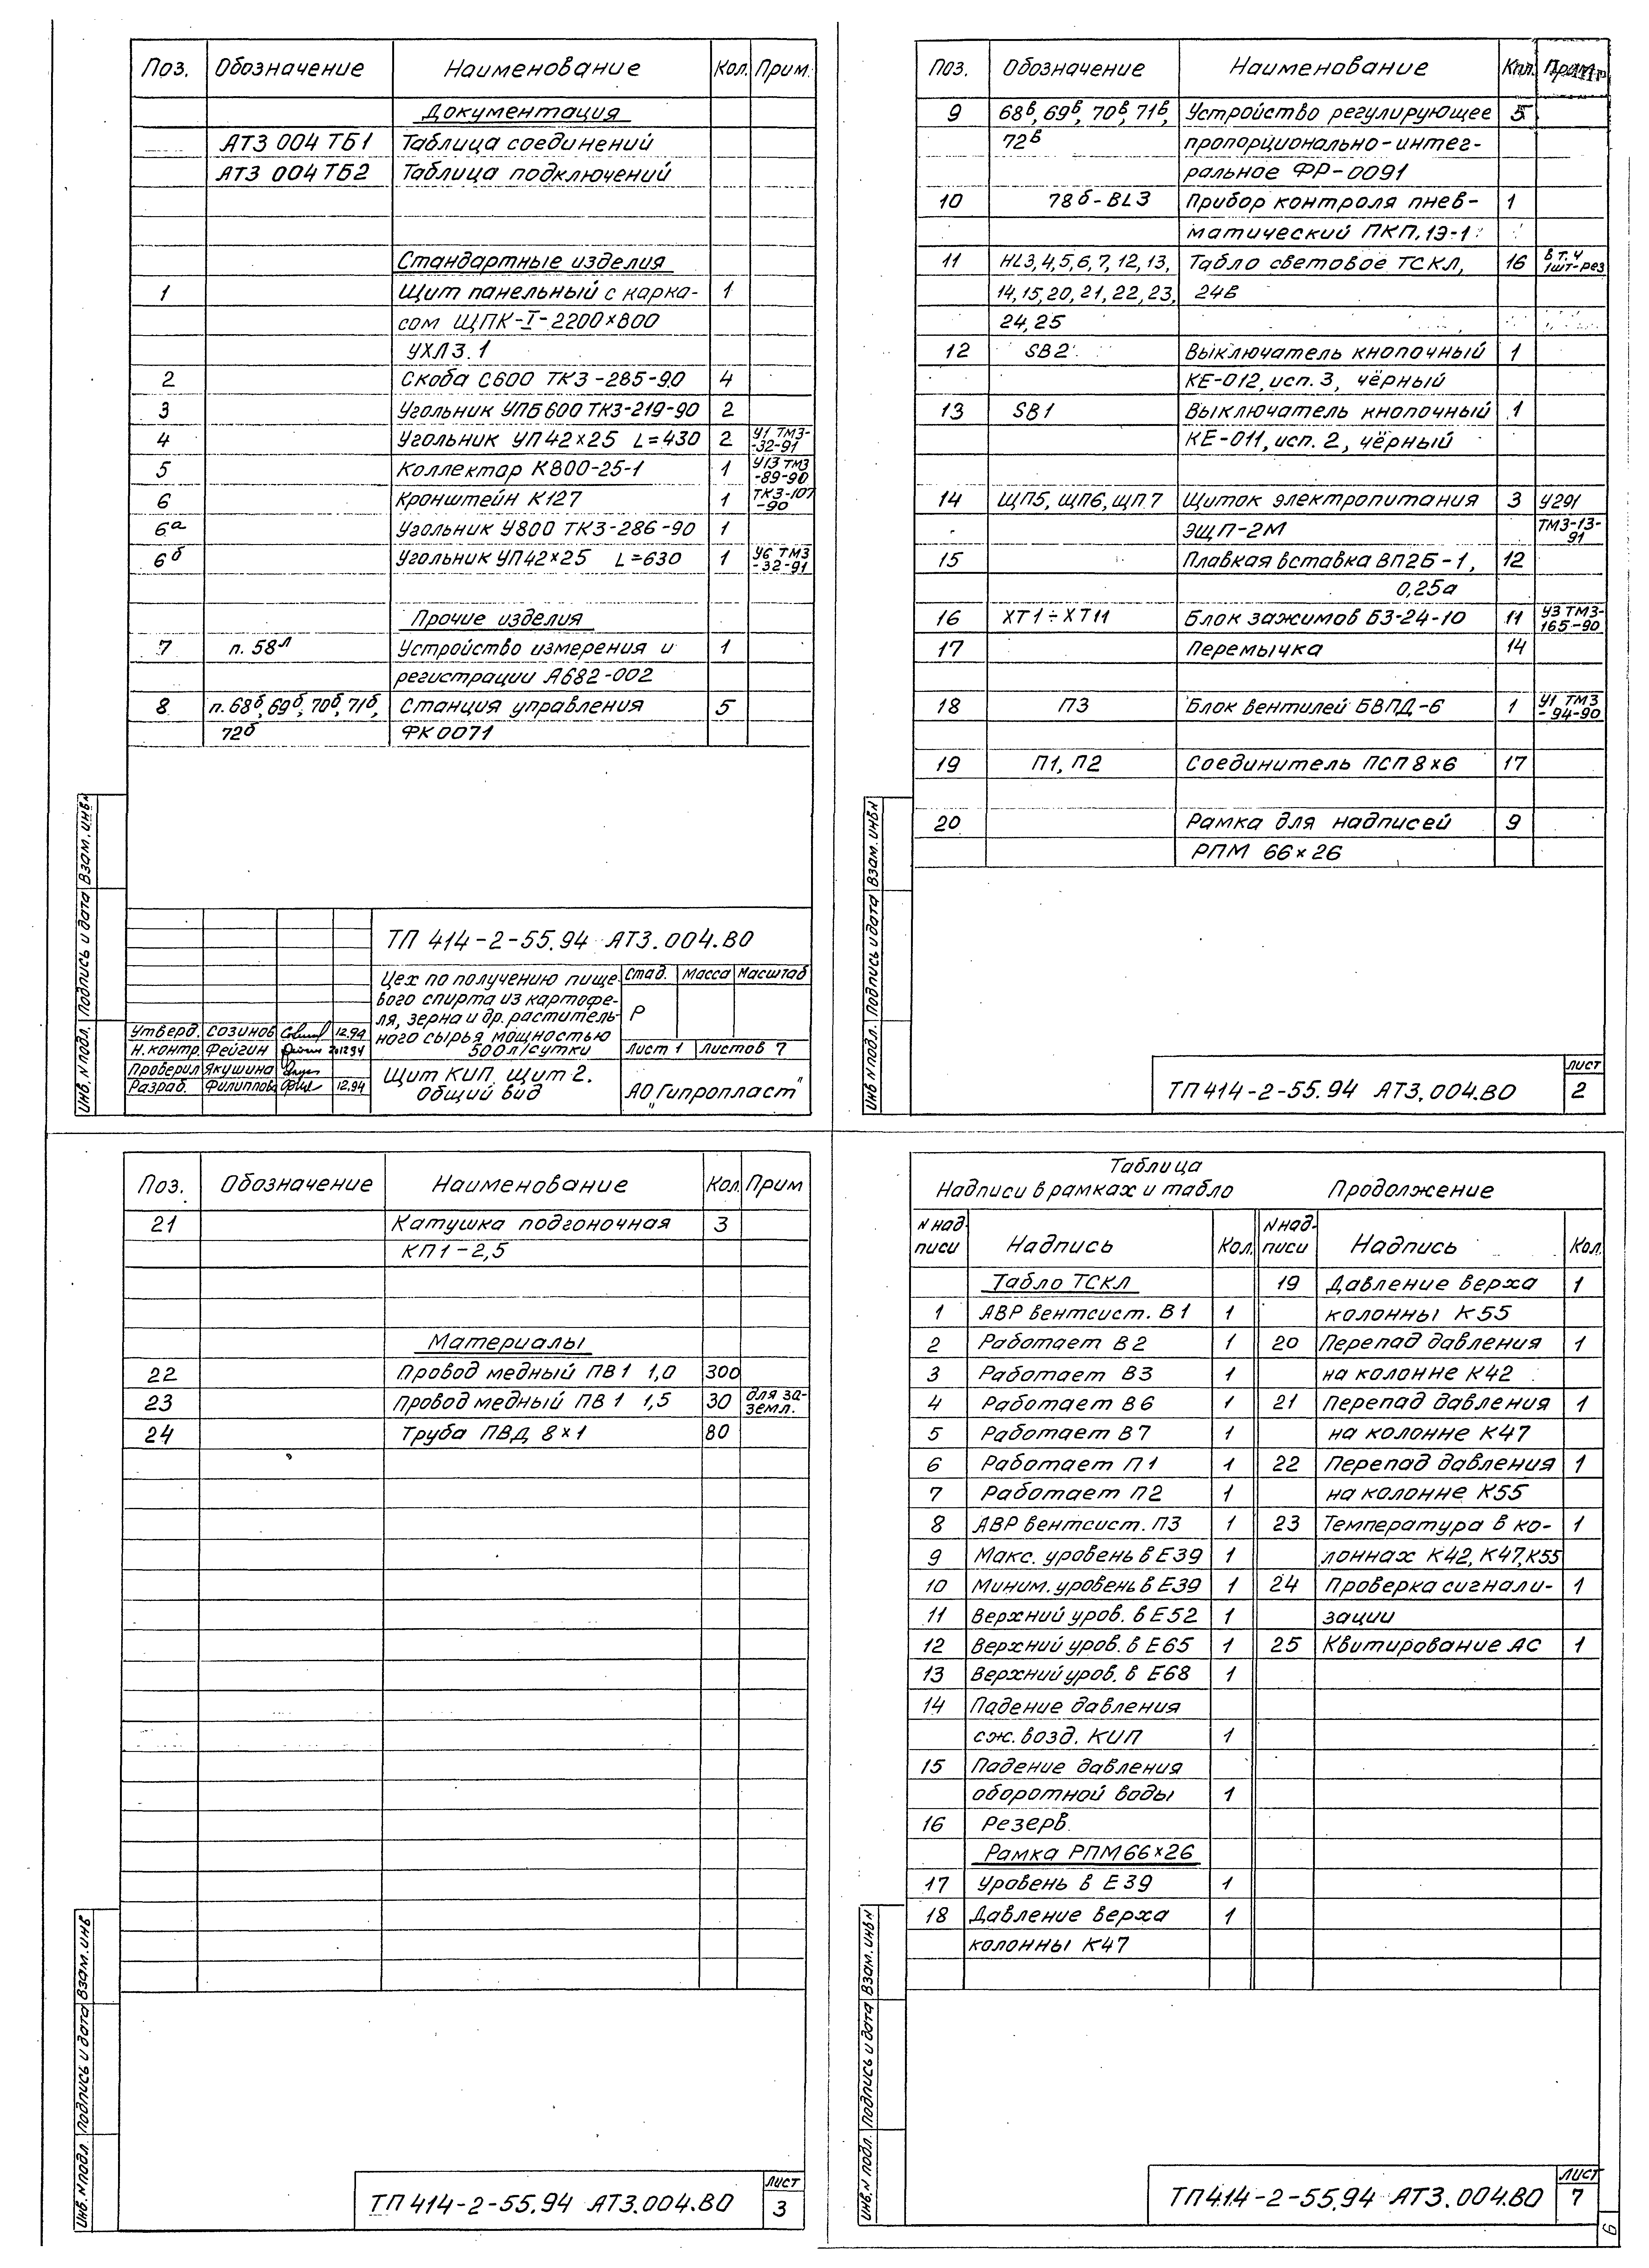 Поз. Обозначение Наименование Кол. Прим.
Документация
АТЗ 004 ТБ1 Таблица соединений
АТЗ 004 ТБ2 Таблица подключений
Стандартные изделия
1 Щит панельный с карка- 1
сом ЩПК-I-2200×800
УХЛ3.1
2 Скоба С600 ТК3-285-90 4
3 Угольник УПБ600 ТК3-219-90 2
4 Угольник УП42×25 L=430 2 У1 ТМ3-
-32-91
5 Коллектор К800-25-1 1 У13 ТМ3
-89-90
6 Кронштейн К127 1 ТК3-107
-90
6а Угольник У800 ТК3-286-90 1
6б Угольник УП42×25 L=630 1 У6 ТМ3
-32-91
Прочие изделия
7 п. 58л Устройство измерения и 1
регистрации А682-002
8 п. 68б, 69б, 70б, 71б, Станция управления 5
72б ФК0071
ТП 414-2-55.94 АТЗ.004.ВО
Цех по получению пище-
вого спирта из картофе-
ля, зерна и др. раститель-
ного сырья мощностью
500л/сутки
Стад. Масса Масштаб
Р
Лист 1 Листов 7
Утверд. Созинов 12.94
Н.контр. Фейгин 2012 94
Проверил Якушина
Разраб. Филиппова 12.94
Щит КИП. Щит 2.
Общий вид
АО "Гипропласт"
Инв.N подл. Подпись и дата Взам.инв.N
Поз. Обозначение Наименование Кол. Прим.
9 68в, 69в, 70в, 71в, Устройство регулирующее 5
72в пропорционально-интег-
ральное ФР-0091
10 78б-BL3 Прибор контроля пнев- 1
матический ПКП.1Э-1
11 HL3,4,5,6,7,12,13, Табло световое ТСКЛ, 16 в т.ч
1шт-рез
14,15,20,21,22,23, 24в
24,25
12 SB2 Выключатель кнопочный 1
КЕ-012, исп.3, чёрный
13 SB1 Выключатель кнопочный 1
КЕ-011, исп.2, чёрный
14 ЩП5, ЩП6, ЩП7 Щиток электропитания 3 У291
ЭЩП-2М ТМ3-13-
91
15 Плавкая вставка ВП2Б-1, 12
0,25а
16 ХТ1÷ХТ11 Блок зажимов БЗ-24-10 11 У3 ТМ3-
165-90
17 Перемычка 14
18 П3 Блок вентилей БВПД-6 1 У1 ТМ3
-94-90
19 П1, П2 Соединитель ПСП 8×6 17
20 Рамка для надписей 9
РПМ 66×26
Инв N подл. Подпись и дата Взам.инв.N
ТП 414-2-55.94 АТЗ.004.ВО
Лист
2
Поз. Обозначение Наименование Кол. Прим
21 Катушка подгоночная 3
КП1-2,5
Материалы
22 Провод медный ПВ1 1,0 300
23 Провод медный ПВ1 1,5 30 для за-
земл.
24 Труба ПВД 8×1 80
Инв.N подл. Подпись и дата Взам.инв
ТП 414-2-55.94 АТЗ.004.ВО
Лист
3
Таблица
Надписи в рамках и табло Продолжение
N над-
писи Надпись Кол.
N над-
писи Надпись Кол.
Табло ТСКЛ
1 АВР вентсист. В1 1
2 Работает В2 1
3 Работает В3 1
4 Работает В6 1
5 Работает В7 1
6 Работает П1 1
7 Работает П2 1
8 АВР вентсист. П3 1
9 Макс. уровень в Е39 1
10 Миним. уровень в Е39 1
11 Верхний уров. в Е52 1
12 Верхний уров. в Е65 1
13 Верхний уров. в Е68 1
14 Падение давления
сж. возд. КИП 1
15 Падение давления
оборотной воды 1
16 Резерв
Рамка РПМ66×26
17 Уровень в Е39 1
18 Давление верха 1
колонны К47
19 Давление верха 1
колонны К55
20 Перепад давления 1
на колонне К42
21 Перепад давления 1
на колонне К47
22 Перепад давления 1
на колонне К55
23 Температура в ко- 1
лоннах К42, К47, К55
24 Проверка сигнали- 1
зации
25 Квитирование АС 1
Инв.N подл. Подпись и дата Взам.инв.N
ТП 414-2-55.94 АТЗ.004.ВО
Лист
7
6